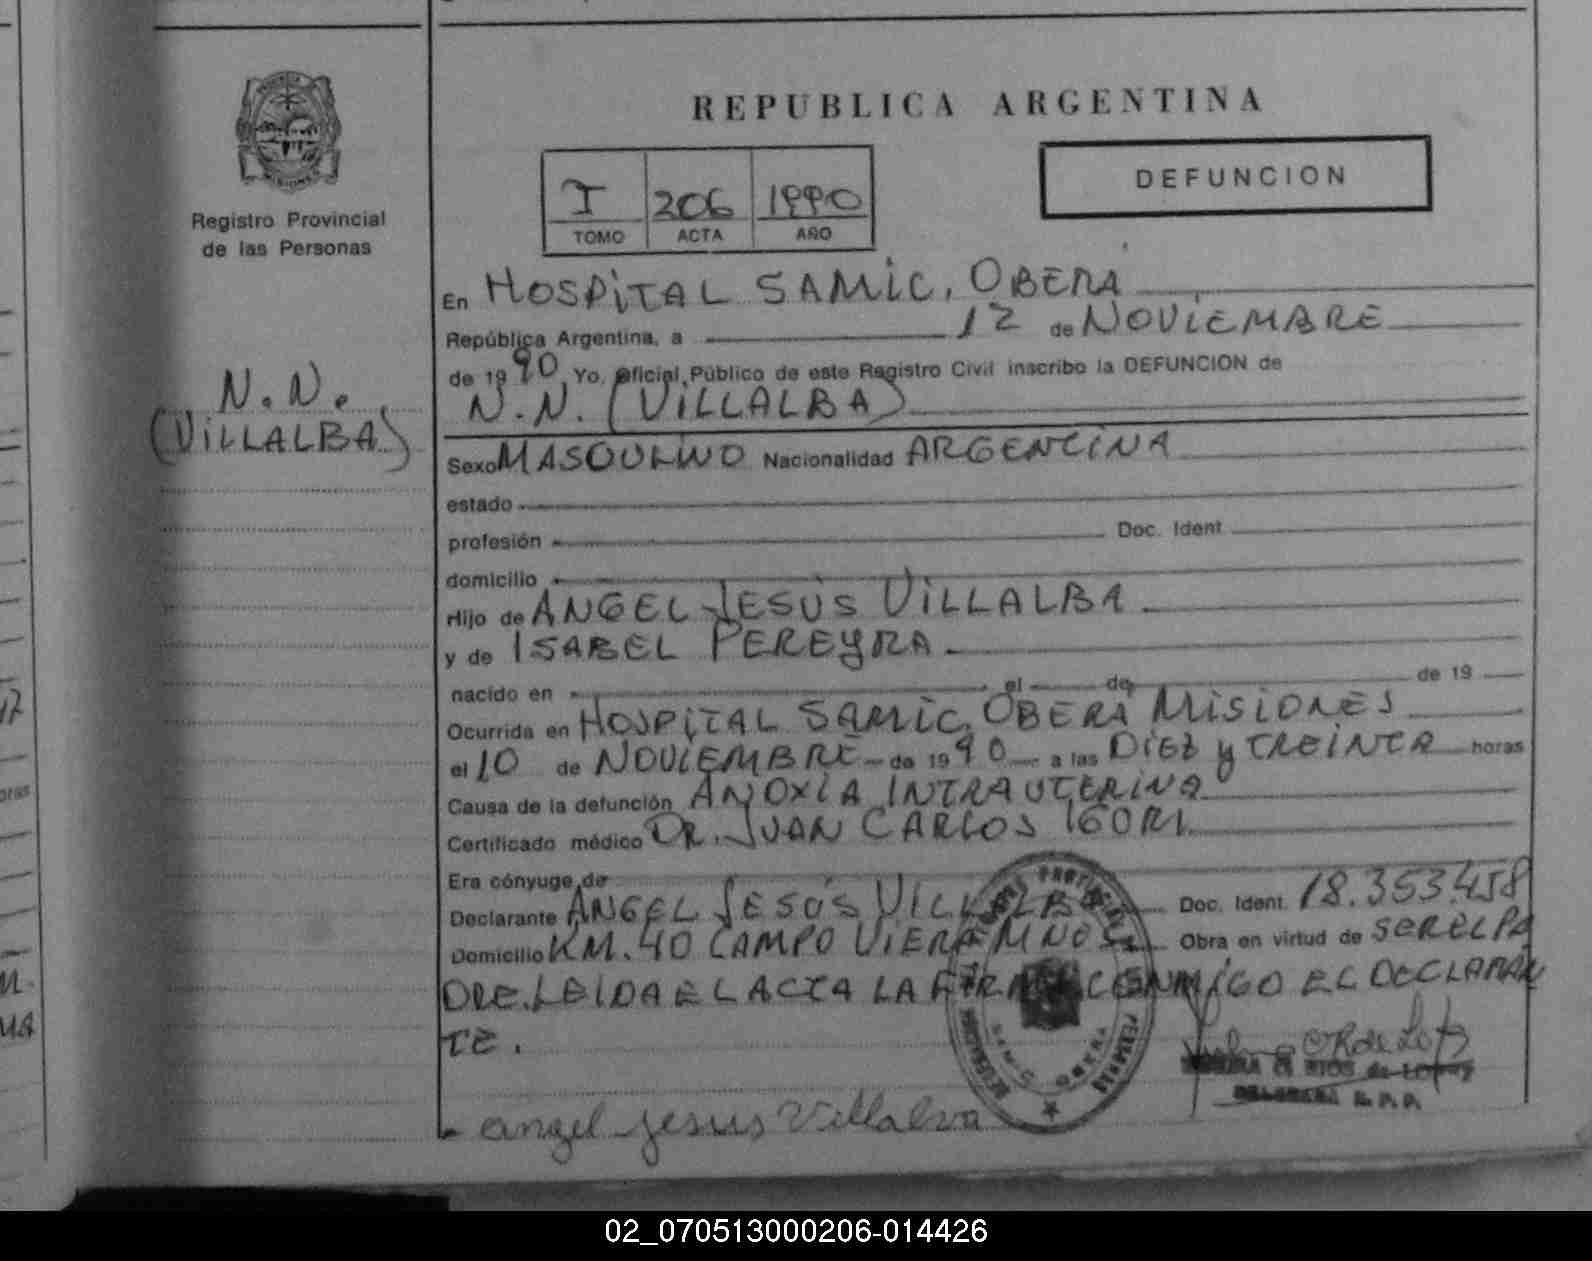 REPUBLICA ARGENTINA
DEFUNCION
Registro Provincial
de las Personas
I 206 1990
TOMO ACTA AÑO
N.N.
(VILLALBA)
En HOSPITAL SAMIC, OBERÁ
República Argentina, a 12 de NOVIEMBRE
de 1990 Yo, Oficial Público de este Registro Civil inscribo la DEFUNCION de
N.N. (VILLALBA)
Sexo MASCULINO Nacionalidad ARGENTINA
estado
profesión Doc. Ident.
domicilio
Hijo de ANGEL JESÚS VILLALBA
y de ISABEL PEREYRA
nacido en el de de 19
Ocurrida en HOSPITAL SAMIC, OBERÁ MISIONES
el 10 de NOVIEMBRE de 1990 a las DIEZ y TREINTA horas
Causa de la defunción ANOXIA INTRAUTERINA
Certificado médico DR. JUAN CARLOS
Era cónyuge de
Declarante ANGEL JESÚS VILLALBA Doc. Ident. 18.353.458
Domicilio KM. 40 CAMPO VIERA MNOS Obra en virtud de SER EL PA
DRE. LEIDA EL ACTA LA FIRMA CONMIGO EL DECLARAN
TE.
angel jesus Villalva
02_070513000206-014426